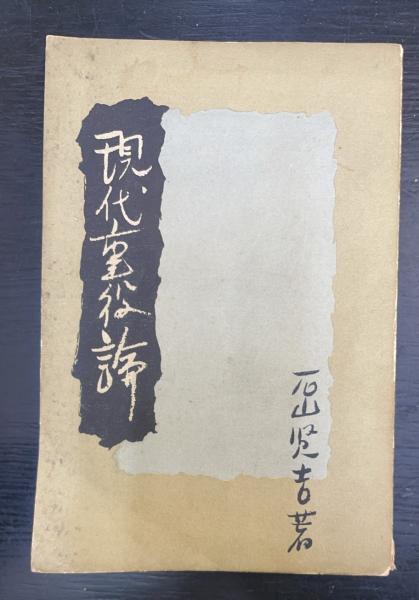 現代重役論
石山賢吉著